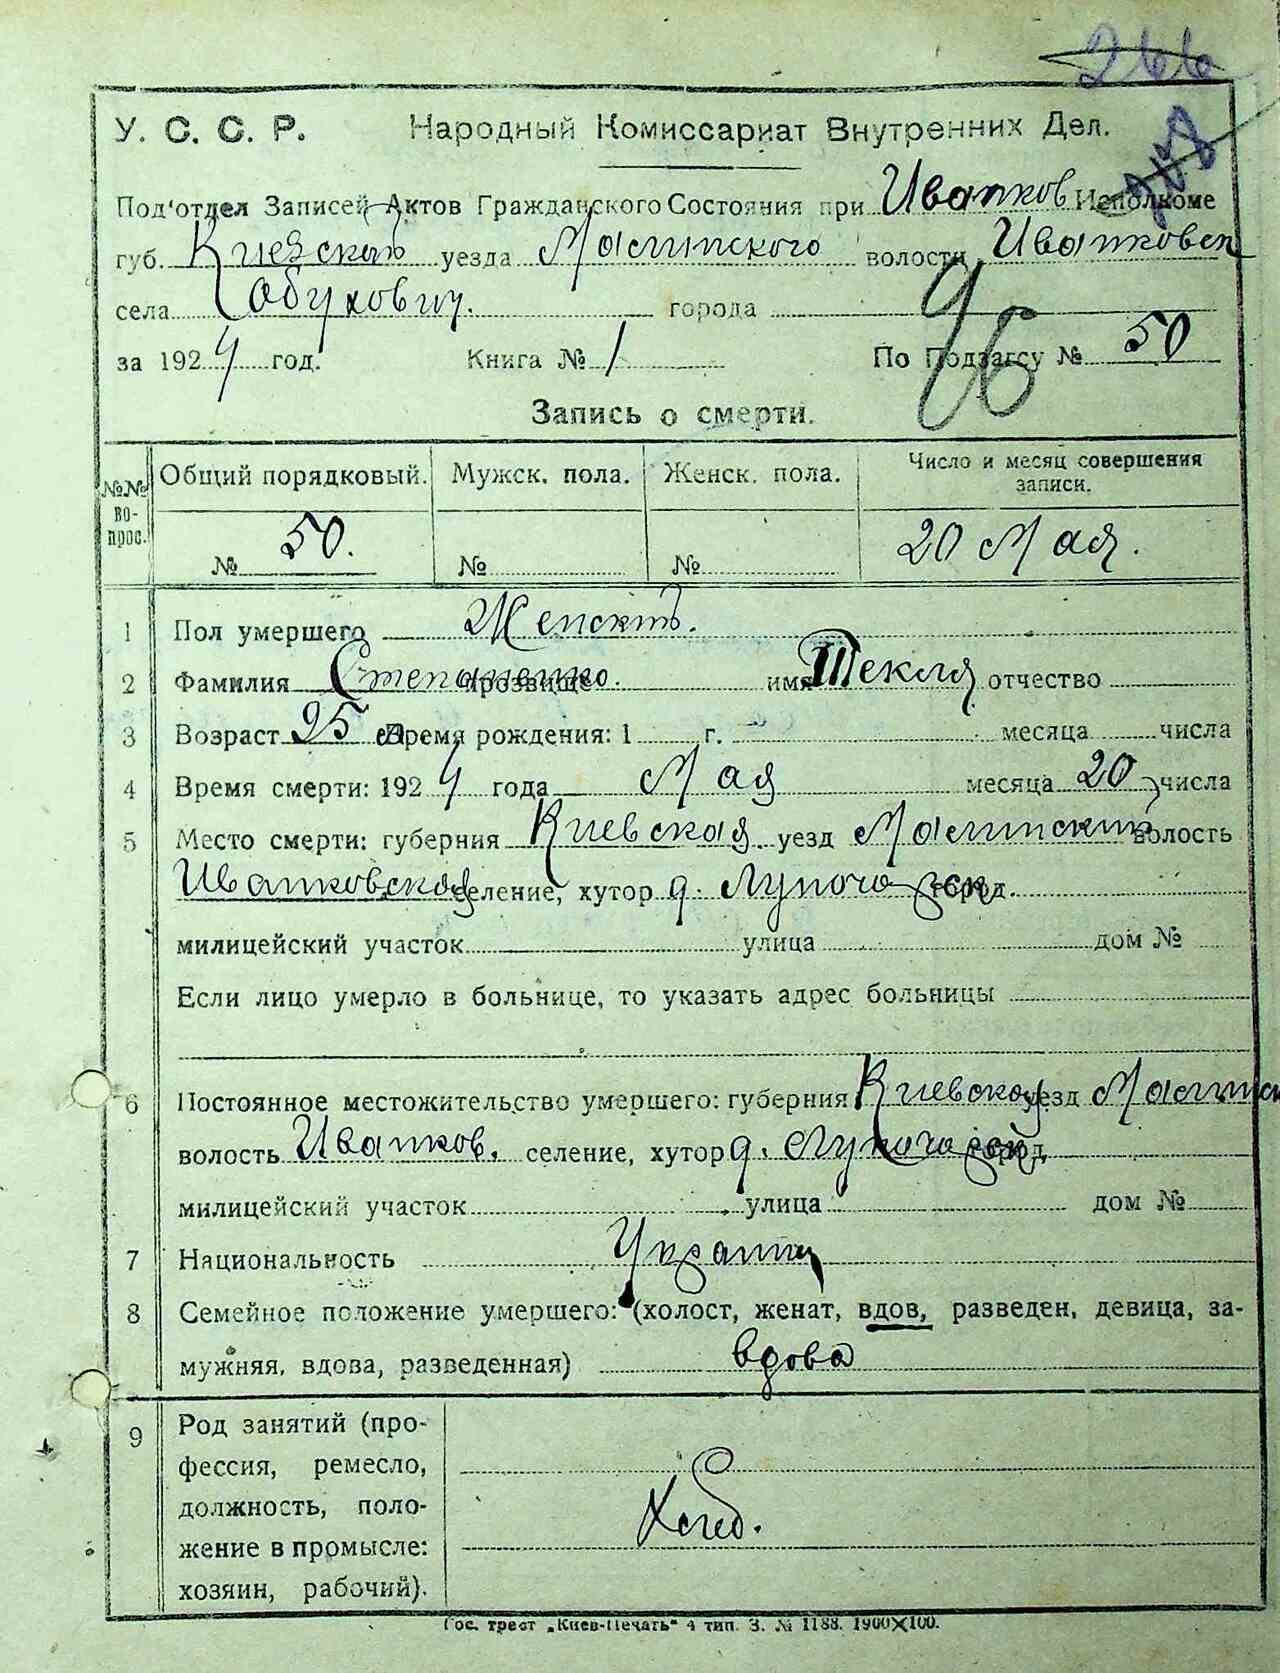 266
У. С. С. Р. Народный Комиссариат Внутренних Дел.
Под'отдел Записей Актов Гражданского Состояния при Иванков Исполкоме
губ. Киевской уезда Малинского волости Иванковск
села Обуховичи города
за 1924 год. Книга № 1 По Подзагсу № 50
96
Запись о смерти.
№№ вопрос. Общий порядковый. Мужск. пола. Женск. пола. Число и месяц совершения записи.
№ 50. № № 20 Мая.
1 Пол умершего Женский.
2 Фамилия Степаненко. прозвище имя Текля отчество
3 Возраст 95 Время рождения: 1 г. месяца числа
4 Время смерти: 1924 года Мая месяца 20 числа
5 Место смерти: губерния Киевская уезд Малинский волость
Иванковская селение, хутор д. город
милицейский участок улица дом №
Если лицо умерло в больнице, то указать адрес больницы
6 Постоянное местожительство умершего: губерния Киевская уезд Малинск
волость Иванков. селение, хутор д. город
милицейский участок улица дом №
7 Национальность Украин
8 Семейное положение умершего: (холост, женат, вдов, разведен, девица, за-
мужняя, вдова, разведенная) вдова
9 Род занятий (про-
фессия, ремесло,
должность, поло-
жение в промысле:
хозяин, рабочий).
Хлеб.
Гос. трест „Киев-Печать“ 4 тип. З. № 1188. 1900X100.